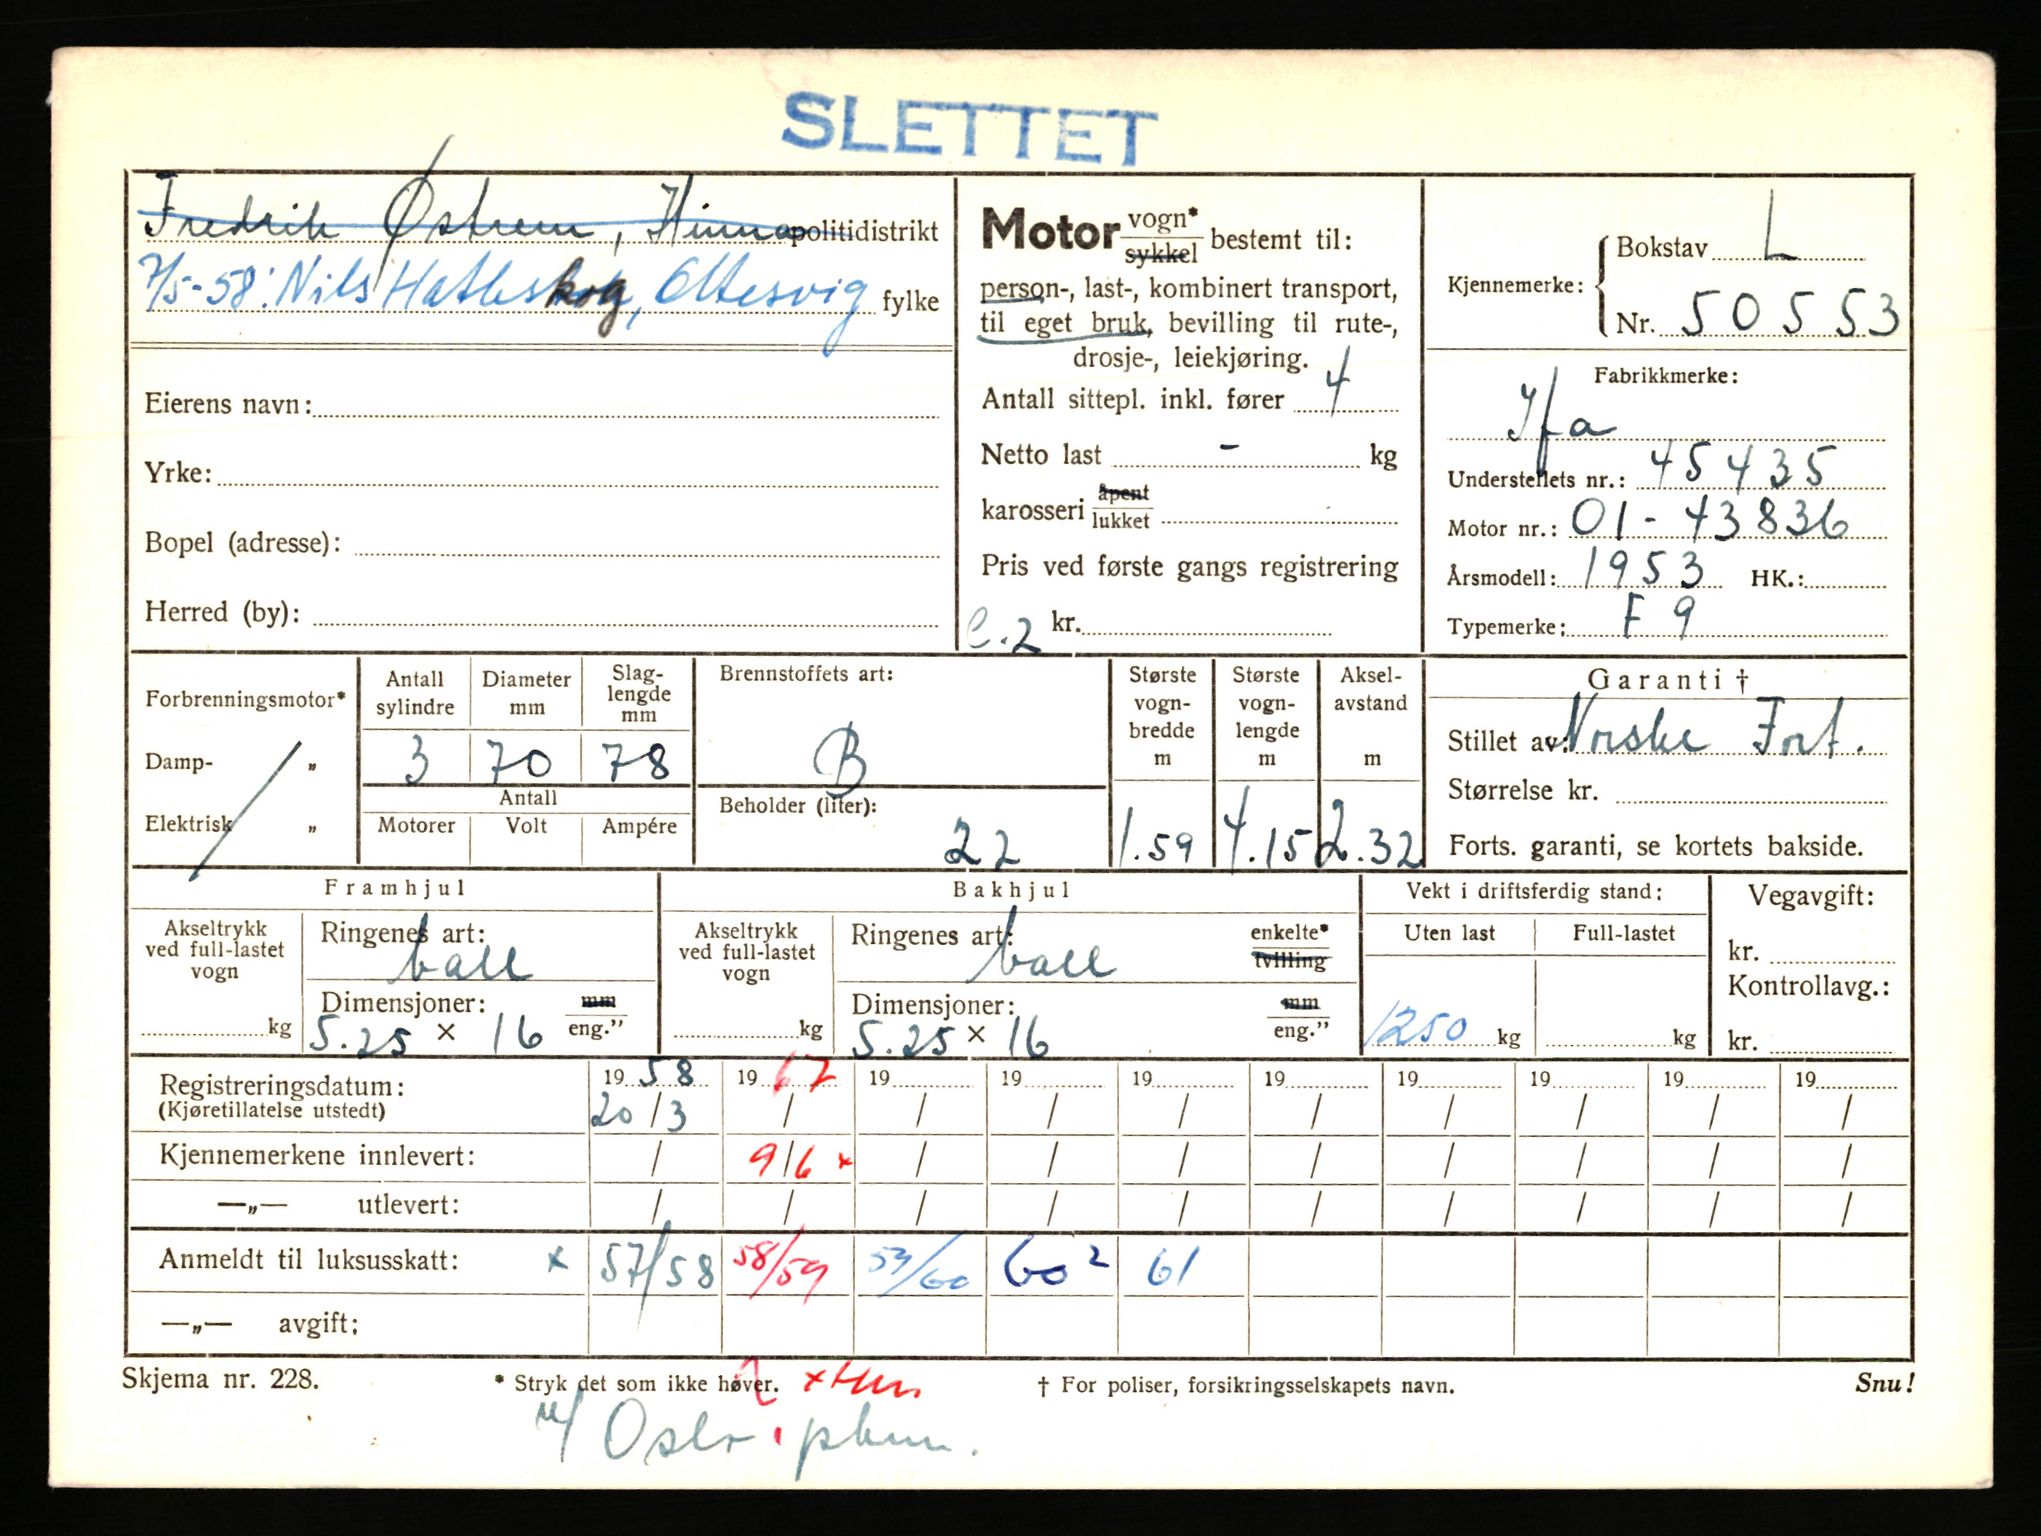 SLETTET
Fredrik Østrem, Hinna politidistrikt
7/5-58: Nils Hatleskog, Oltesvig fylke
Eierens navn:
Yrke:
Bopel (adresse):
Herred (by):
Motor vogn* sykkel bestemt til:
person-, last-, kombinert transport,
til eget bruk, bevilling til rute-,
drosje-, leiekjøring.
Antall sittepl. inkl. fører 4
Netto last - kg
karosseri åpent lukket
Pris ved første gangs registrering
C.2 kr.
Kjennemerke: Bokstav L
Nr. 50553
Fabrikkmerke:
Ifa
Understellets nr.: 45435
Motor nr.: 01-43836
Årsmodell: 1953 HK.:
Typemerke: F 9
Forbrenningsmotor*
Damp- „
Elektrisk „
Antall sylindre
3
Diameter mm
70
Slag-lengde mm
78
Antall
Motorer Volt Ampére
Brennstoffets art:
B
Beholder (liter):
22
Største vogn-bredde m
1.59
Største vogn-lengde m
4.15
Aksel-avstand m
2.32
Garanti †
Stillet av: Norske Fort.
Størrelse kr.
Forts. garanti, se kortets bakside.
Framhjul
Akseltrykk ved full-lastet vogn
kg
Ringenes art:
ball
Dimensjoner: mm
5.25 × 16 eng.”
Bakhjul
Akseltrykk ved full-lastet vogn
kg
Ringenes art: enkelte* tvilling
ball
Dimensjoner: mm
5.25 × 16 eng.”
Vekt i driftsferdig stand:
Uten last Full-lastet
1250 kg kg
Vegavgift:
kr.
Kontrollavg.:
kr.
Registreringsdatum: 1958 1967 19 19 19 19 19 19 19 19
(Kjøretillatelse utstedt) 20/3 / / / / / / / / /
Kjennemerkene innlevert: / 9/6 x / / / / / / / /
—„— utlevert: / / / / / / / / / /
Anmeldt til luksusskatt: x 57/58 58/59 59/60 60² 61
—„— avgift;
Skjema nr. 228. * Stryk det som ikke høver. † For poliser, forsikringsselskapets navn. Snu!
Oslo